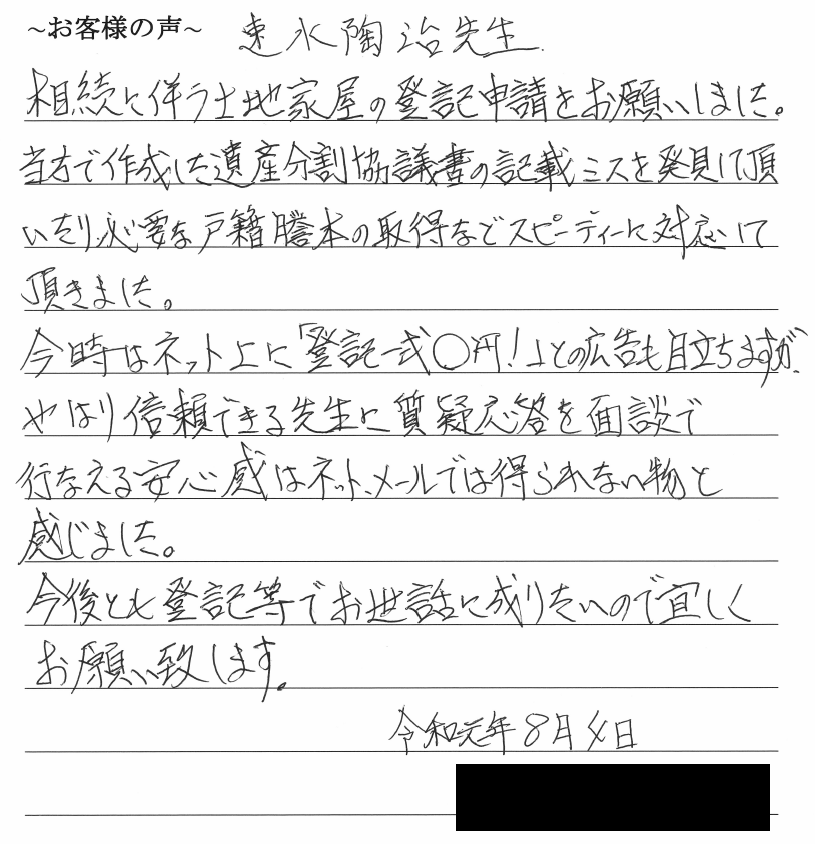 ~お客様の声~ 速水陶治先生
相続に伴う土地家屋の登記申請をお願いしました。
当方で作成した遺産分割協議書の記載ミスを発見して頂
いたり、必要な戸籍謄本の取得などスピーディーに対応して
頂きました。
今時はネット上に「登記一式〇円!」との広告も目立ちますが、
やはり信頼できる先生に質疑応答を面談で
行なえる安心感はネット、メールでは得られない物と
感じました。
今後とも登記等でお世話に成りたいので宜しく
お願い致します。
令和元年8月 日